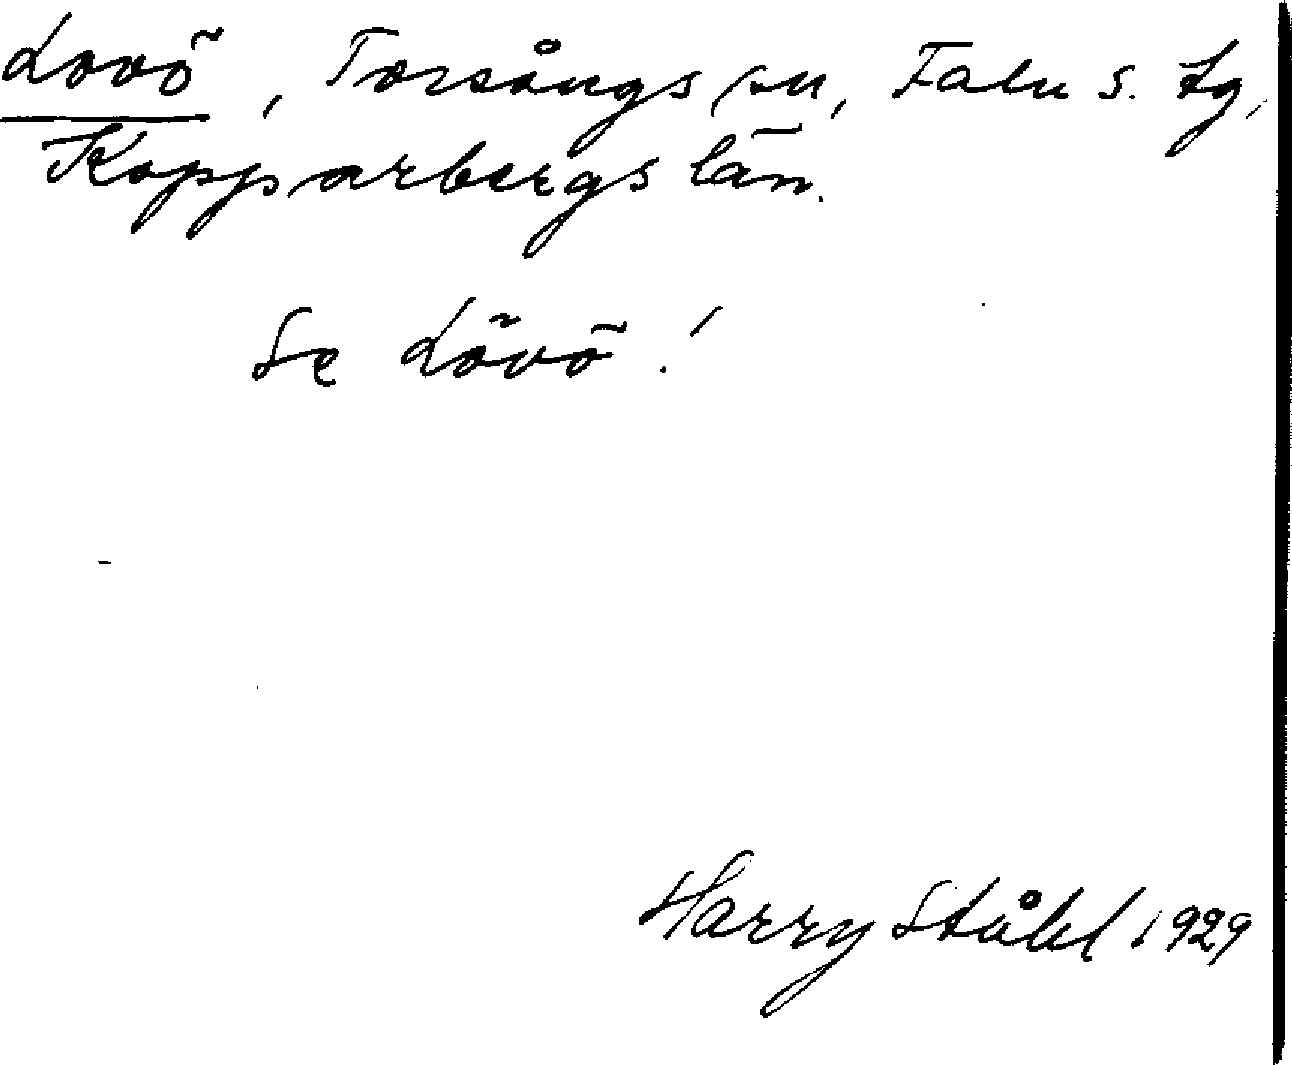 Lovö, Torsångs sn, Falu s. tg,
Kopparbergs län.
Se Lövö!
Harry Ståhl 1929